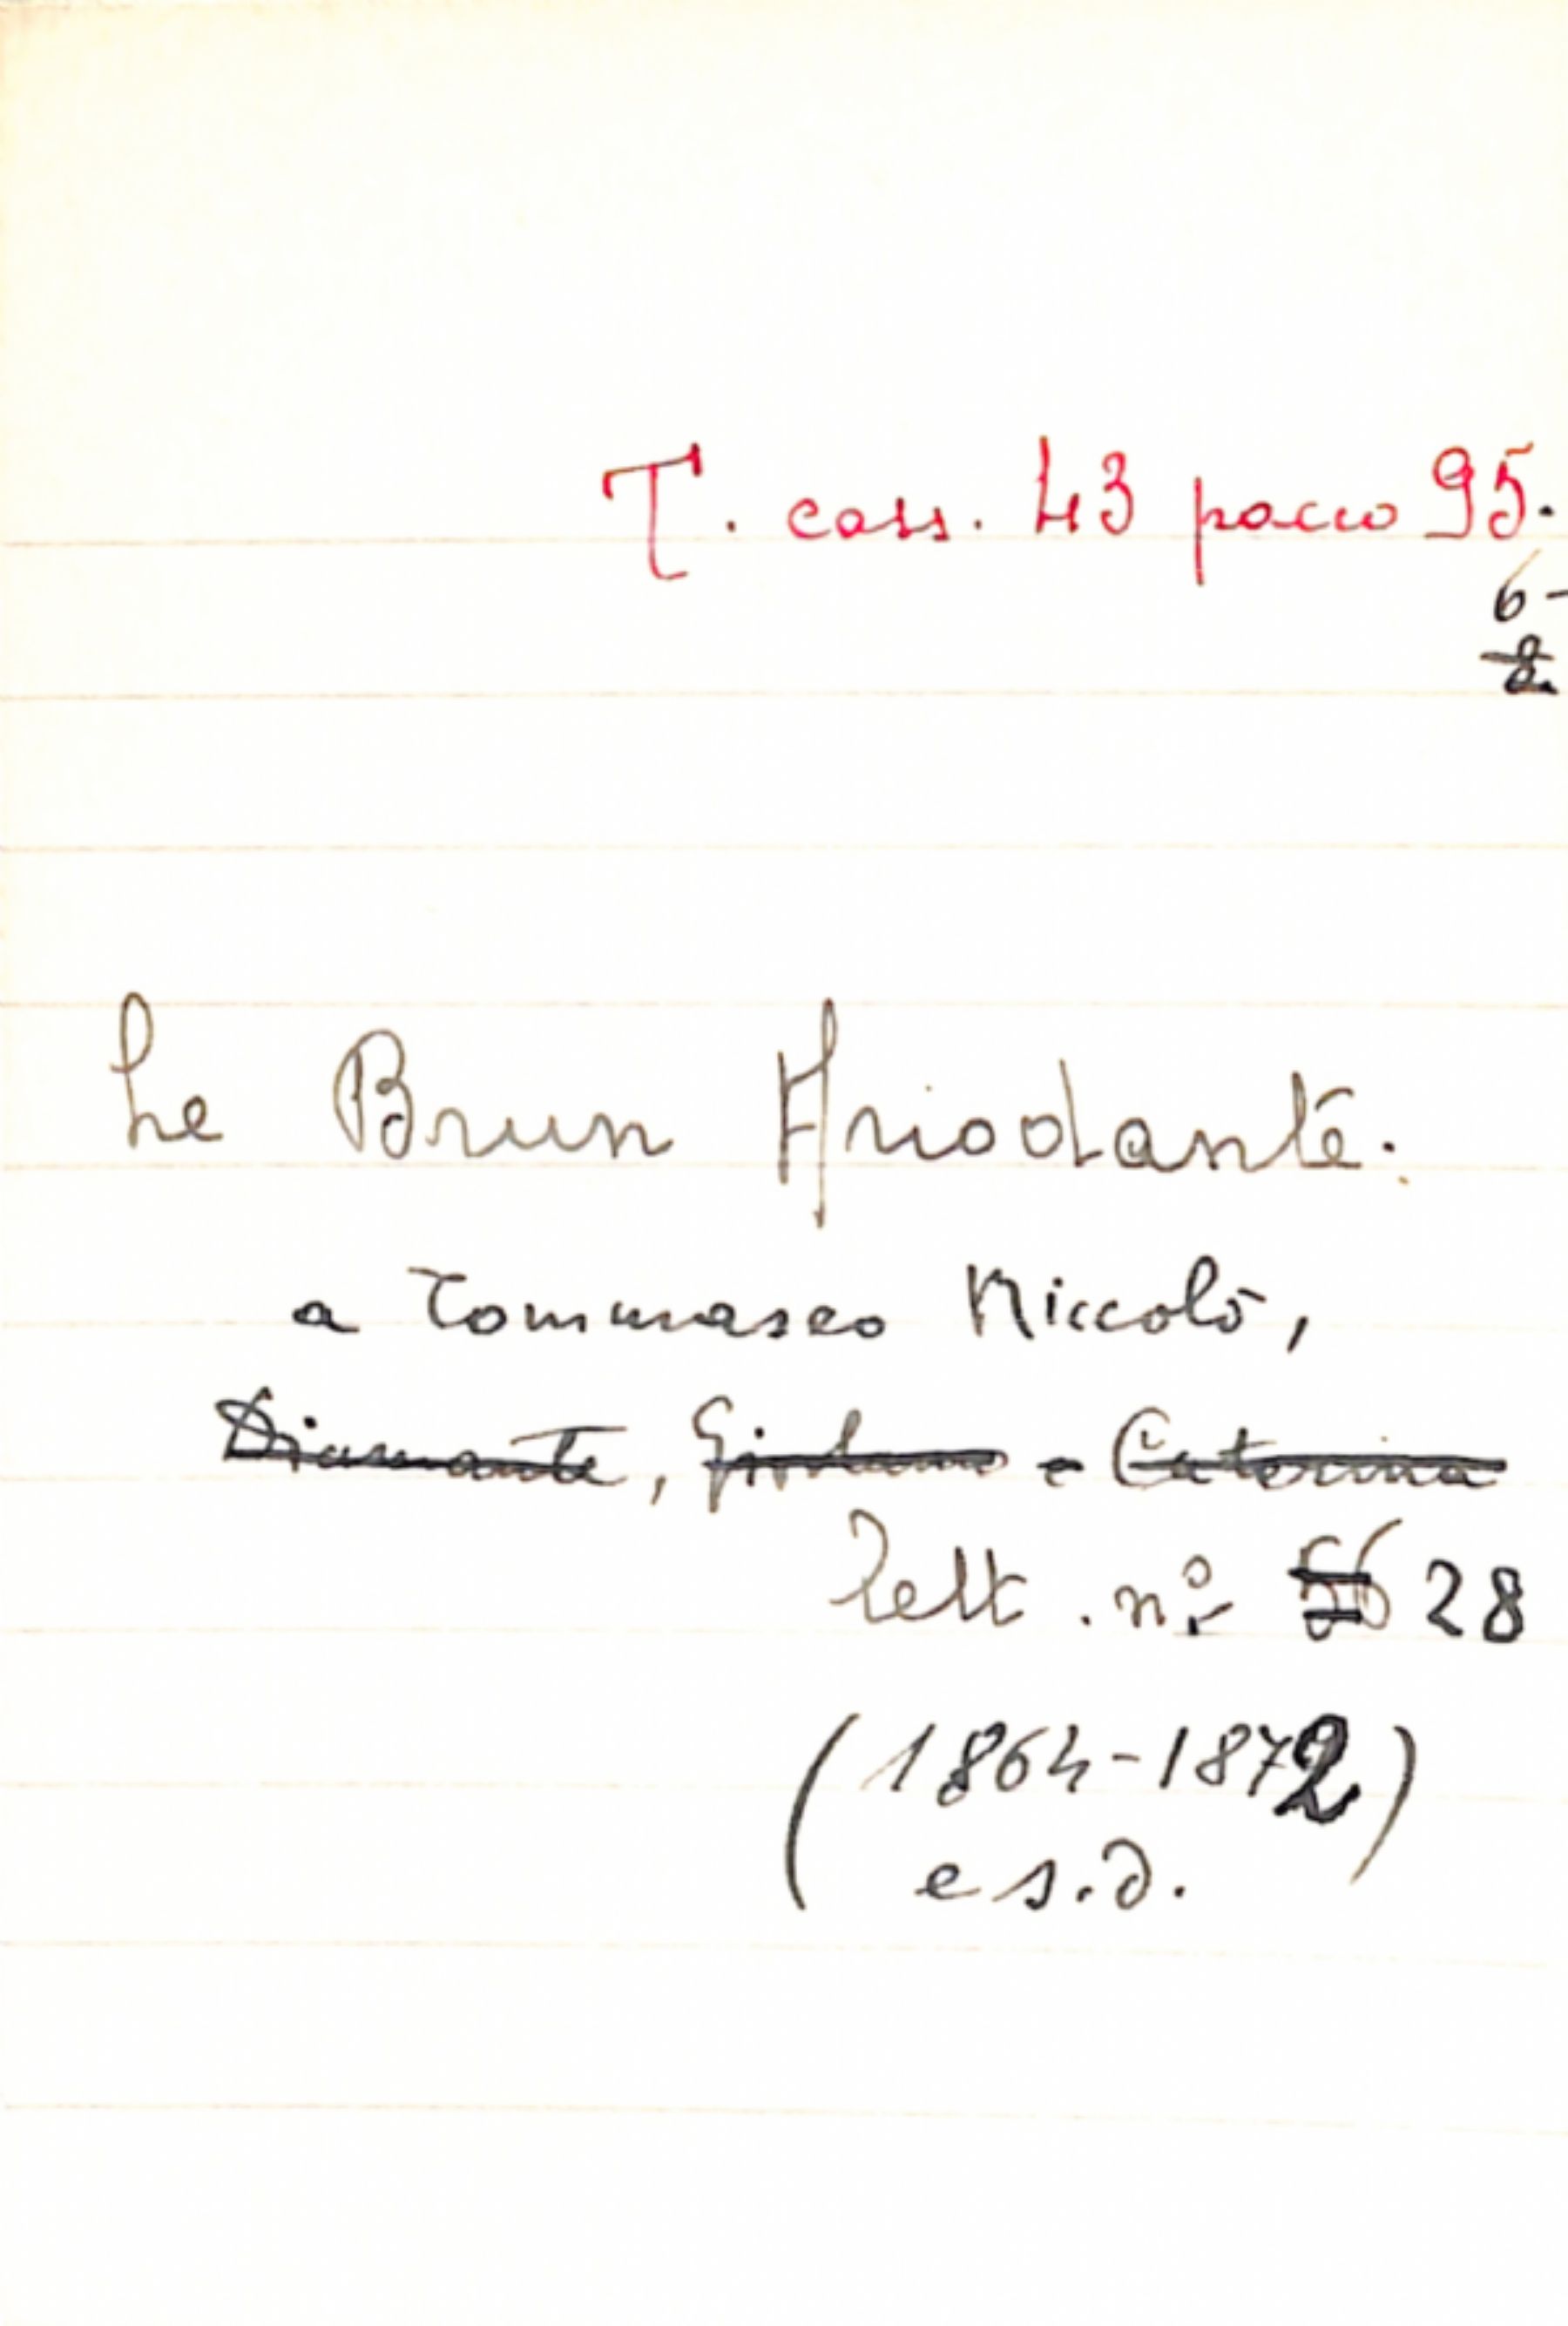 T. cass. 43 pacco 95.
6-
2.
Le Brun Ariodante.
a Tommaseo Niccolò,
Diamante, Girolamo e Caterina
lett. n° 56 28
(1864-1872)
e s.d.